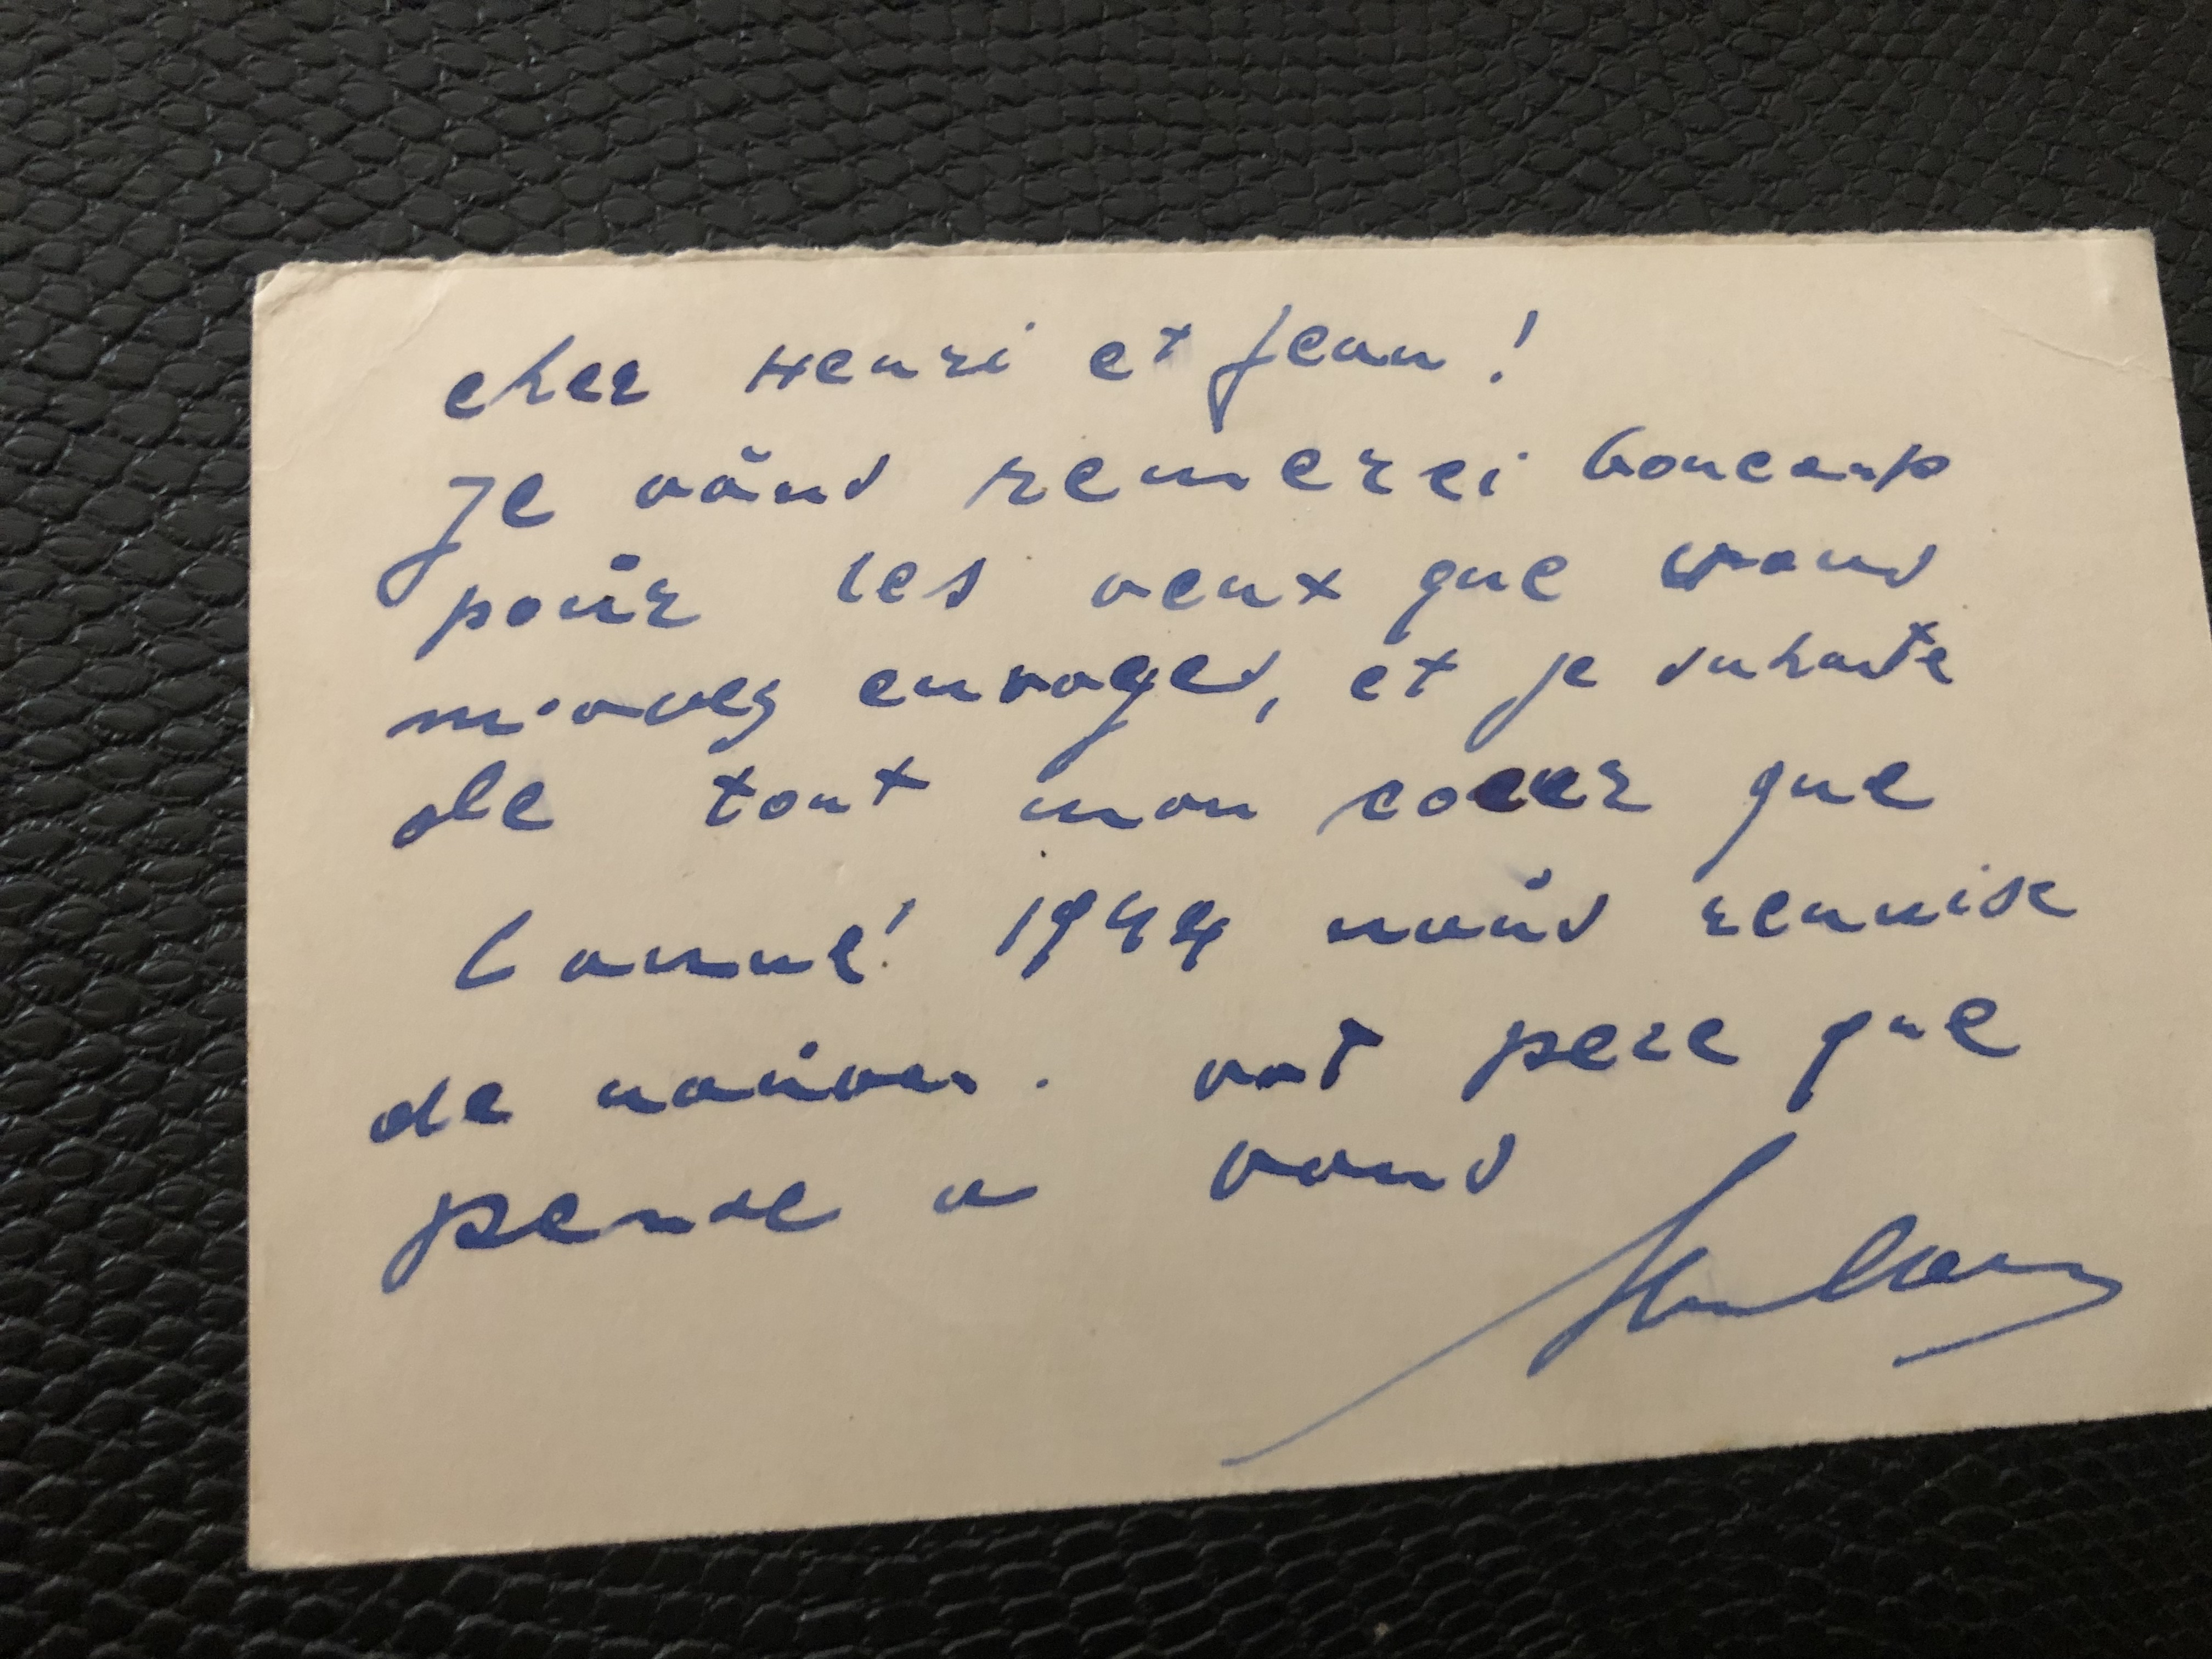 cher Henri et Jean !
Je voŭs remerci boucoup
pour les veux que vous
m'avez envoyes, et je suhaite
de tout mon coeur que
l anné 1944 noŭs reunise
de nouveau. vot pere que
pense a vous